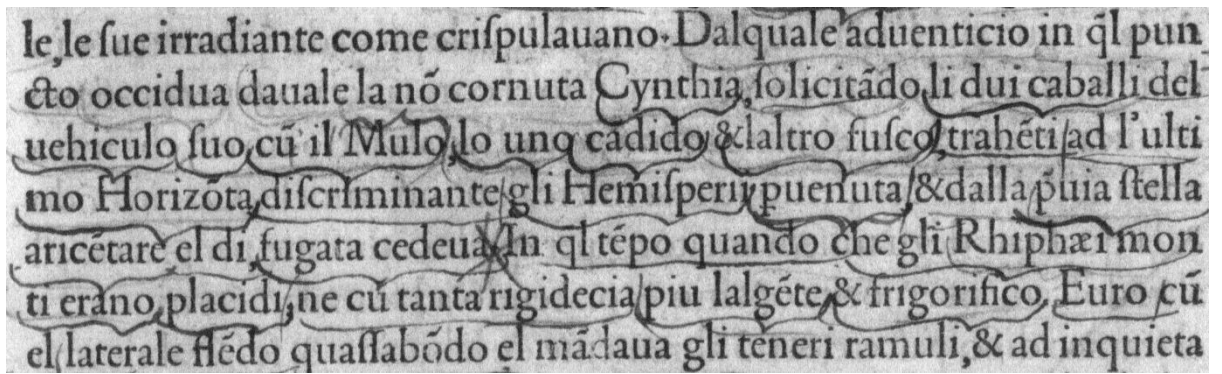 le, le ſue irradiante come criſpulauano. Dalquale aduenticio in q̃l pun
cto occidua dauale la nõ cornuta Cynthia, ſolicitãdo li dui caballi del
uehiculo ſuo cũ il Mulo, lo uno cãdido & laltro fuſco, trahẽti ad l'ulti
mo Horizõta diſcriminante gli Hemiſperii ꝑuenuta, & dalla p̃uia ſtella
aricẽtare el di, fugata cedeua. In q̃l tẽpo quando che gli Rhiphæi mon
ti erano placidi, ne cũ tanta rigidecia piu lalgẽte & frigorifico Euro cũ
el laterale flẽdo quaſſabõdo el mãdaua gli teneri ramuli, & ad inquieta